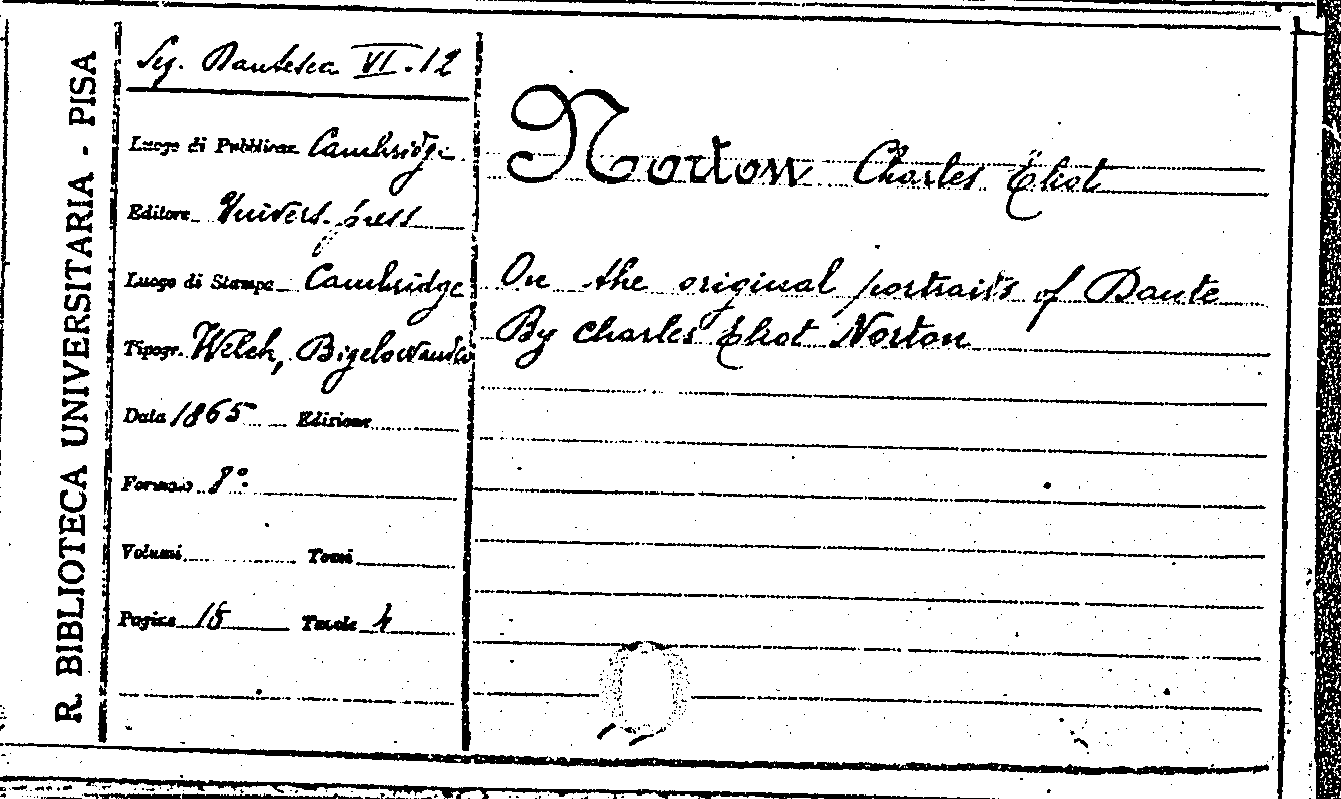 R. BIBLIOTECA UNIVERSITARIA - PISA
Sg. Dantesca VI.12
Luogo di Pubblicaz. Cambridge
Editore Univers. press
Luogo di Stampa Cambridge
Tipogr. Welch, Bigelow
Data 1865 Edizione
Formato 8°
Volumi Tomi
Pagine 15 Tavole 4
Norton Charles Eliot
On the original portraits of Dante
By Charles Eliot Norton